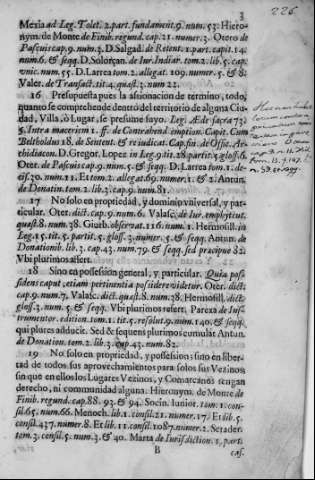 226
3
Mexia ad Leg. Tolet. 2. part. fundament. 9. num. 53. Hiero-
nym. de Monte de Finib. regund. cap. 21. numer. 3. Otero de
Pascuis cap. 9. num. 3. D. Salgad. de Retent. 1. part. capit. 14.
num. 6. & seqq. D. Solorçan. de Iur. Indiar. tom. 2. lib. 5. cap.
vnic. num. 55. D. Larrea tom. 2. allegat. 109. numer. 5. & 8.
Valer. de Transact. tit. 4. quæst. 3. num. 22.
16 Presupuesta pues la assignacion de termino, todo,
quanto se comprehende dentro del territorio de alguna Ciu-
dad, Villa, ò Lugar, se presume suyo. Leg. Æde sacra 73.
§. Intra maceriem 1. ff. de Contrahend. emption. Capit. Cum
Bertholdus 18. de Sentent. & re iudicat. Cap. fin. de Offic. Ar-
chidiacon. D. Gregor. Lopez in Leg. 9. tit. 28. partit. 3. gloss. 6.
Oter. de Pascuis cap. 9. num. 5. & seqq. D. Larrea tom. 1. de-
cis. 30. num. 11. Et tom. 2. allegat. 69. numer. 1. & 2. Antun.
de Donation. tom. 2. lib. 3. cap. 9. num. 81.
17 No solo en propriedad, y dominio vniversal, y par-
ticular. Oter. dict. cap. 9. num. 6. Valasc. de Iur. emphyteut.
quæst. 8. num. 38. Giurb. observat. 116. num. 1. Hermosill. in
Leg. 15. tit. 5. partit. 5. gloss. 3. numer. 5. & seqq. Antun. de
Donationib. lib. 3. cap. 43. num. 79. & seqq. sed præcipuè 82.
Vbi plurimos afert.
18 Sino en possession general, y particular. Quia pos-
sidens caput, etiam pertinentia possidere videtur. Oter. dict.
cap. 9. num. 7. Valasc. dict. quæst. 8. num. 38. Hermosill. dict.
gloss. 3. num. 5. & seqq. Vbi plurimos refert. Pareja de Ins-
trumentor. edition. tom. 1. tit. 5. resolut. 9. num. 140. & seqq.
qui plures adducit. Sed & sequens plurimos cumulat Antun.
de Donation. tom. 2. lib. 3. cap. 43. num. 82.
19 No solo en propriedad, y possession: sino en liber-
tad de todos sus aprovechamientos para solos sus Vezinos,
sin que en ellos los Lugares Vezinos, y Comarcanos tengan
derecho, ni communidad alguna. Hieronym. de Monte de
Finib. regund. cap. 88. 93. & 94. Socin. Iunior. tom. 1. con-
sil. 65. num. 66. Menoch. lib. 1. consil. 21. numer. 17. Et lib. 5.
consil. 437. numer. 8. Et lib. 11. consil. 1087. numer. 2. Serader.
tom. 3. consil. 5. num. 3. & 40. Marta de Iurisdiction. 1. part.
B
cas.